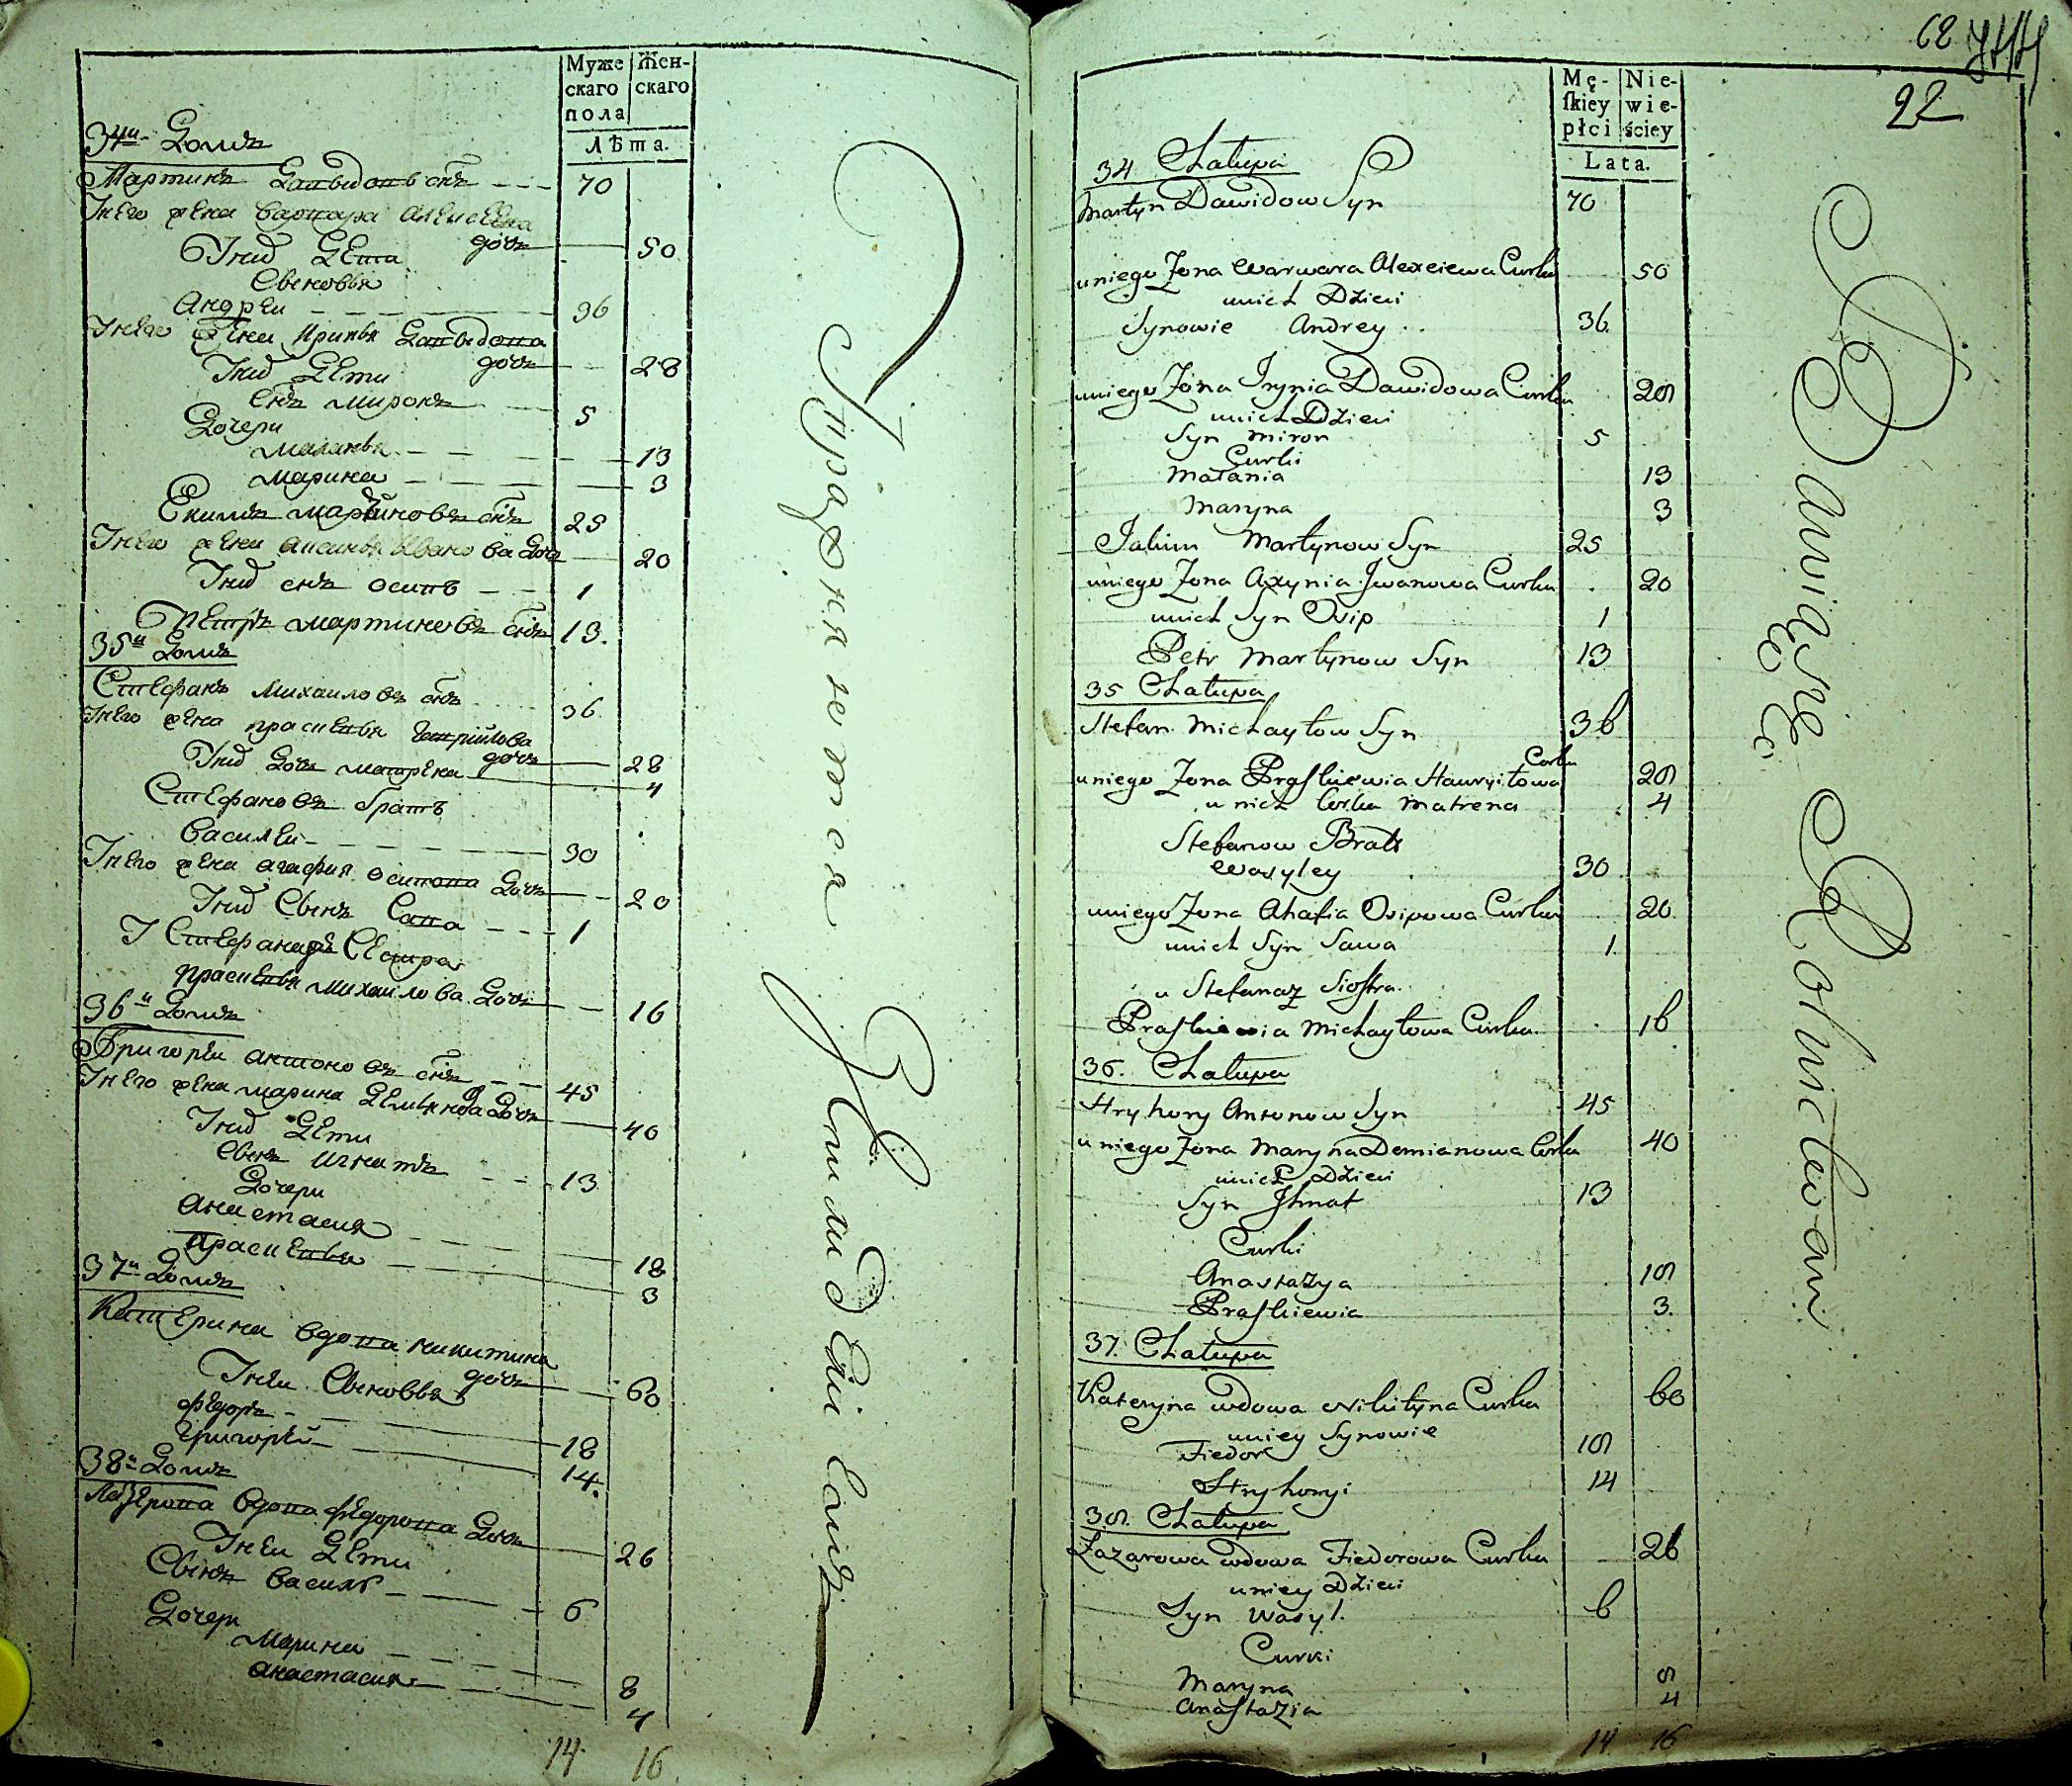 Муже
скаго
пола
Жен-
скаго
Лѣта.
34й Домъ
Мартинъ Давыдовъ снъ 70
Унего жена варвара алексеева
дочь 50
Унихъ Дети
Сыновья
Андреи 36
Унего жена Иринья Давыдова
дочь 28
Унихъ Дети
Снъ миронъ 5
Дочери
маланья 13
марина 3
Екимъ мартиновъ снъ 25
Унего жена аксинья Иванова Дочь 20
Унихъ снъ осипъ 1
Петръ мартиновъ снъ 13.
35й Домъ
Стефанъ Михаиловъ снъ 36
Унего жена прасковья
дочь 28
Унихъ Дочь матрена 4
Стефановъ братъ
Василеи 30
Унего жена агафия осипова Дочь 20
Унихъ Сынъ Сава 1
У Стефана Сестра
прасковья михаилова Дочь 16
36й Домъ
Григореи антоновъ снъ 45
Унего жена марина Демьянова Дочь 40
Унихъ Дети
Сынъ игнатъ 13
Дочери
Анастасия 18
прасковья 3
37й Домъ
Катерина вдова никитина
дочь 60
Унеи Сыновья
федоръ 18
григореи 14.
38й Домъ
Лазерова вдова федорова Дочь 26
Унеи Дети
Сынъ василь 6
Дочери
Марина 8
анастасия 4
14 16
Упражняется
В земледелии
68
22
Mę-
ſkiey
płci
Nie-
wie-
ściey
Lata.
34 Chałupa
Martyn Dawidow Syn 70
uniego Zona Warwara Alexeiewa Curka 50
unich Dzieci
Synowie Andrey 36.
uniego Zona Irynia Dawidowa Curka 28
unich Dzieci
Syn Miron 5
Curki
Małania 13
Maryna 3
Jakim Martynow Syn 25
uniego Zona Axynia Iwanowa Curka 20
unich Syn Osip 1
Petr Martynow Syn 13
35 Chałupa
Stefan Michayłow Syn 36
Curka
uniego Zona Praſkiewia Hawryiłowa 28
u nich Curka Matrena 4
Stefanow Brat
Wasyley 30
uniego Zona Ahafia Osipowa Curka 20.
unich Syn Sawa 1.
u Stefana Sioſtra.
Praſkiewia Michayłowa Curka. 16
36. Chałupa
Hryhory Antonow Syn 45
u niego Zona Maryna Demianowa Curka 40
unich Dzieci
Syn Ihnat 13
Curki
Anastazya 18
Praſkiewia 3.
37. Chałupa
Kateryna wdowa Nikityna Curka 60
uniey Synowie
Fiedor 18
Hryhoryi 14
38. Chałupa
Łazarowa wdowa Fiedorowa Curka 26
uniey Dzieci
Syn Wasyl. 6
Curki
Maryna 8
Anaſtazia 4
14 16
Bawią się
Rolnictwem